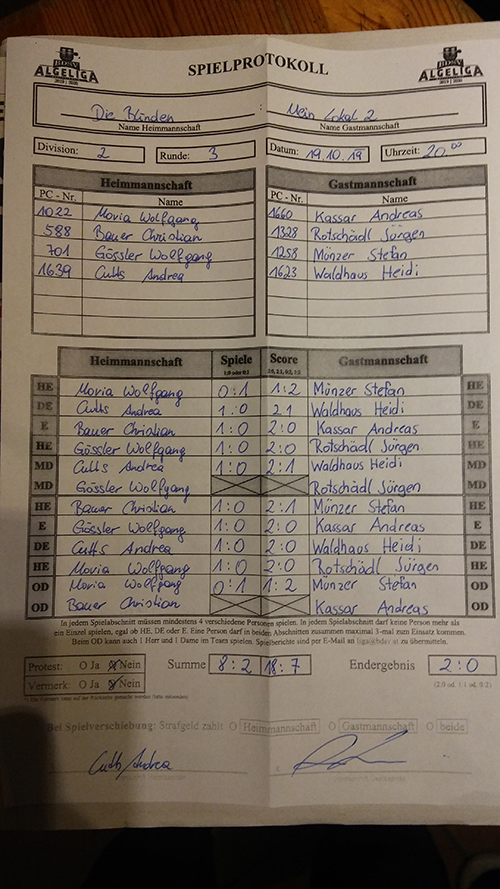 BDSV ALGELIGA
SPIELPROTOKOLL
BDSV ALGELIGA
Die Blinden : Mein Lokal 2
Name Heimmannschaft Name Gastmannschaft
Division: 2 Runde: 3 Datum: 19.10.19 Uhrzeit: 20 00
Heimmannschaft Gastmannschaft
PC - Nr. Name PC - Nr. Name
1022 Moria Wolfgang 1660 Kassar Andreas
588 Bauer Christian 1328 Rotschädl Jürgen
701 Gössler Wolfgang 1258 Münzer Stefan
1639 Cutts Andrea 1623 Waldhaus Heidi
Heimmannschaft Spiele Score Gastmannschaft
1:0 oder 0:1 2:0, 2:1, 0:2, 1:2
HE Moria Wolfgang 0:1 1:2 Münzer Stefan HE
DE Cutts Andrea 1:0 2:1 Waldhaus Heidi DE
E Bauer Christian 1:0 2:0 Kassar Andreas E
HE Gössler Wolfgang 1:0 2:0 Rotschädl Jürgen HE
MD Cutts Andrea 1:0 2:1 Waldhaus Heidi MD
MD Gössler Wolfgang Rotschädl Jürgen MD
HE Bauer Christian 1:0 2:1 Münzer Stefan HE
E Gössler Wolfgang 1:0 2:0 Kassar Andreas E
DE Cutts Andrea 1:0 2:0 Waldhaus Heidi DE
HE Moria Wolfgang 1:0 2:0 Rotschädl Jürgen HE
OD Moria Wolfgang 0:1 1:2 Münzer Stefan OD
OD Bauer Christian Kassar Andreas OD
In jedem Spielabschnitt müssen mindestens 4 verschiedene Personen spielen. In jedem Spielabschnitt darf keine Person mehr als
ein Einzel spielen, egal ob HE, DE oder E. Eine Person darf in beiden Abschnitten zusammen maximal 3-mal zum Einsatz kommen.
Beim OD kann auch 1 Herr und 1 Dame im Team spielen. Spielberichte sind per E-Mail an liga@bdsv.at zu übermitteln.
Protest: O Ja O Nein Summe 8:2 18:7 Endergebnis 2:0
Vermerk: O Ja O Nein (2:0 od. 1:1 od. 0:2)
Bei Spielverschiebung: Strafgeld zahlt O Heimmannschaft O Gastmannschaft O beide
Cutts Andrea